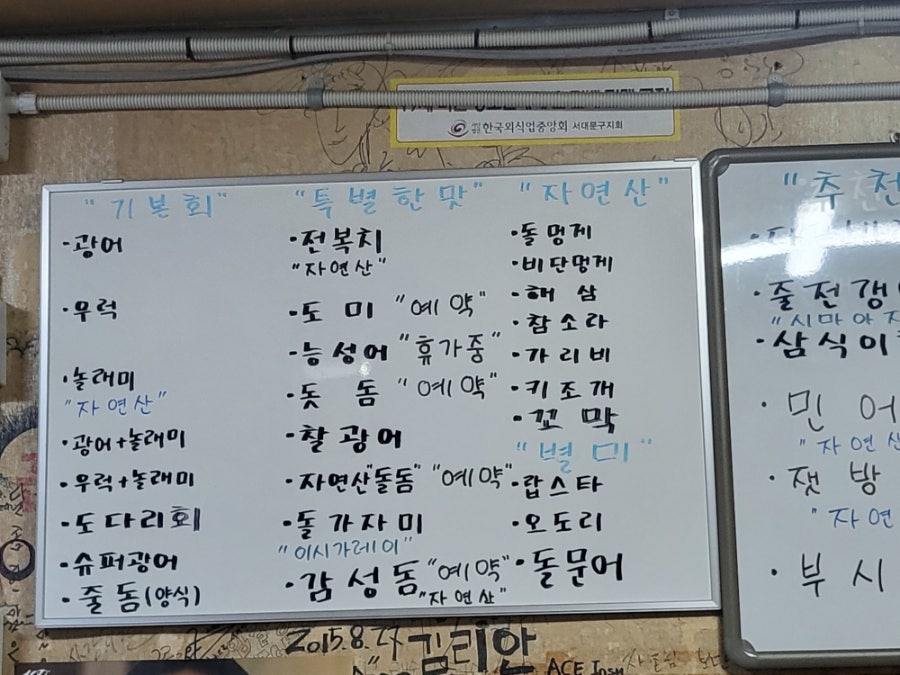 한국외식업중앙회 서대문구지회
"기본회"
·광어
·우럭
·놀래미
"자연산"
·광어+놀래미
·우럭+놀래미
·도다리회
·슈퍼광어
·줄돔(양식)
"특별한맛"
·전복치
"자연산"
·도미 "예약"
·능성어 "휴가중"
·돗돔 "예약"
·찰광어
·자연산"돌돔" "예약"
·돌가자미
"이시가레이"
·감성돔 "예약"
"자연산"
"자연산"
·돌멍게
·비단멍게
·해삼
·참소라
·가리비
·키조개
·꼬막
"별미"
·랍스타
·오도리
·돌문어
"추천
·줄전갱이
"시마아지
·삼식이
·민어
"자연산
·잿방
"자연
·부시
2015.8.27 김리안
ACE